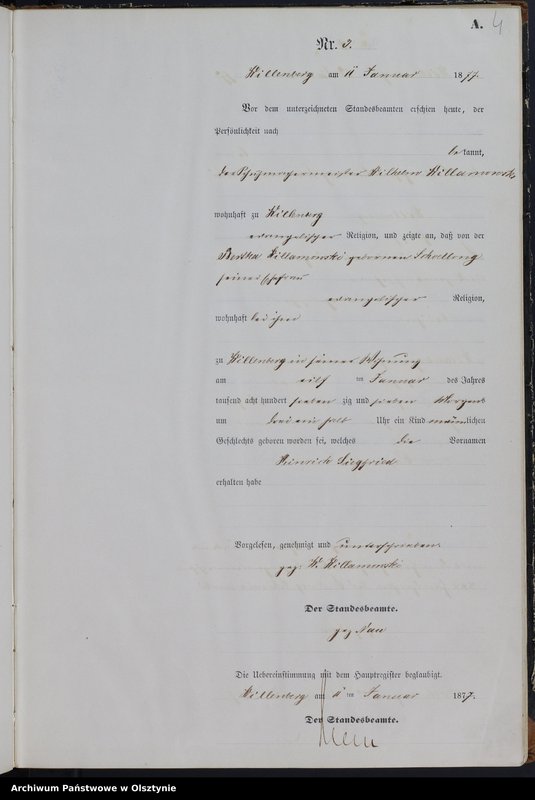 A. 4
Nr. 3.
Willenberg am 11 Januar 1877.
Vor dem unterzeichneten Standesbeamten erschien heute, der
Persönlichkeit nach
bekannt,
der Wilhelm Willamowski
wohnhaft zu Willenberg
evangelischer Religion, und zeigte an, daß von der
Bertha Willamowski geborenen
seiner Ehefrau
evangelischer Religion,
wohnhaft bei ihm
zu Willenberg in seiner Wohnung
am eilf ten Januar des Jahres
tausend acht hundert sieben zig und sieben Morgens
um drei ein halb Uhr ein Kind männlichen
Geschlechts geboren worden sei, welches die Vornamen
Heinrich Siegfried
erhalten habe
Vorgelesen, genehmigt und unterschrieben
gez. W. Willamowski
Der Standesbeamte.
gez Nau
Die Uebereinstimmung mit dem Hauptregister beglaubigt.
Willenberg am 11 ten Januar 1877.
Der Standesbeamte.
Archiwum Państwowe w Olsztynie